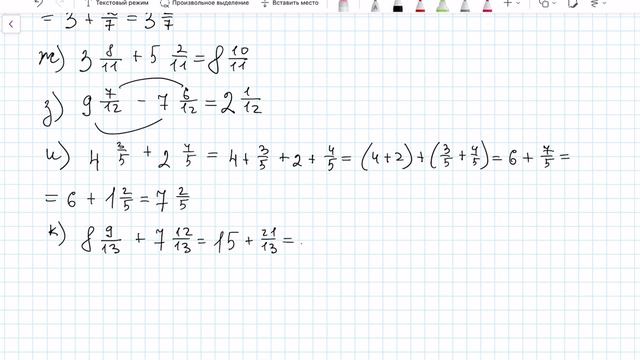 Текстовый режим Произвольное выделение Вставить место
= 3 + 7 = 3 7
ж) 3 8/11 + 5 2/11 = 8 10/11
з) 9 7/12 - 7 6/12 = 2 1/12
и) 4 3/5 + 2 4/5 = 4 + 3/5 + 2 + 4/5 = (4+2) + (3/5 + 4/5) = 6 + 7/5 =
= 6 + 1 2/5 = 7 2/5
к) 8 9/13 + 7 12/13 = 15 + 21/13 =